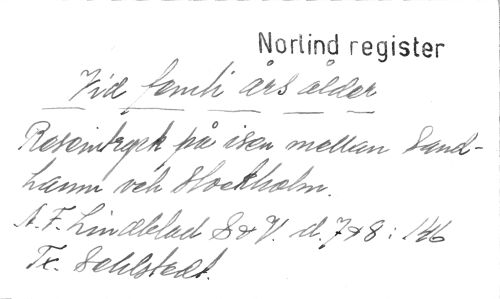 Norlind register
Vid femti års ålder
Reseintryck på isen mellan Sand-
hamn och Stockholm.
A. F. Lindblad S & V. d. 7 & 8 : 146
Tx. Sehlstedt.